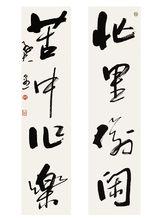 忙里偷闲
苦中作乐